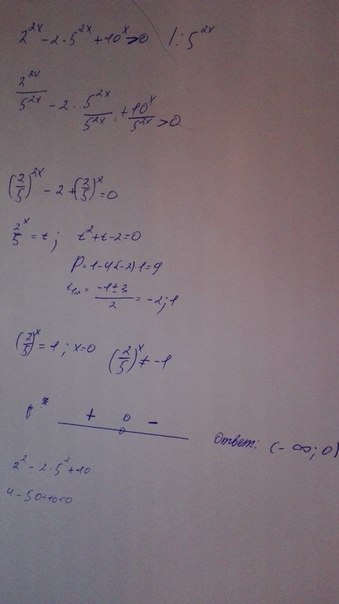 2^{2x} - 2·5^{2x} + 10^x > 0 | : 5^{2x}
2^{2x}/5^{2x} - 2 · 5^{2x}/5^{2x} + 10^x/5^{2x} > 0
(2/5)^{2x} - 2 + (2/5)^x = 0
2/5^x = t ; t^2 + t - 2 = 0
D = 1 - 4(-2)·1 = 9
t_{1,2} = (-1 ± 3)/2 = -2; 1
(2/5)^x = 1 ; x = 0 (2/5)^x ≠ -1
+ 0 -
0
Ответ: (-∞; 0)
2^2 - 2·5^2 + 10
4 - 50 + 10 < 0